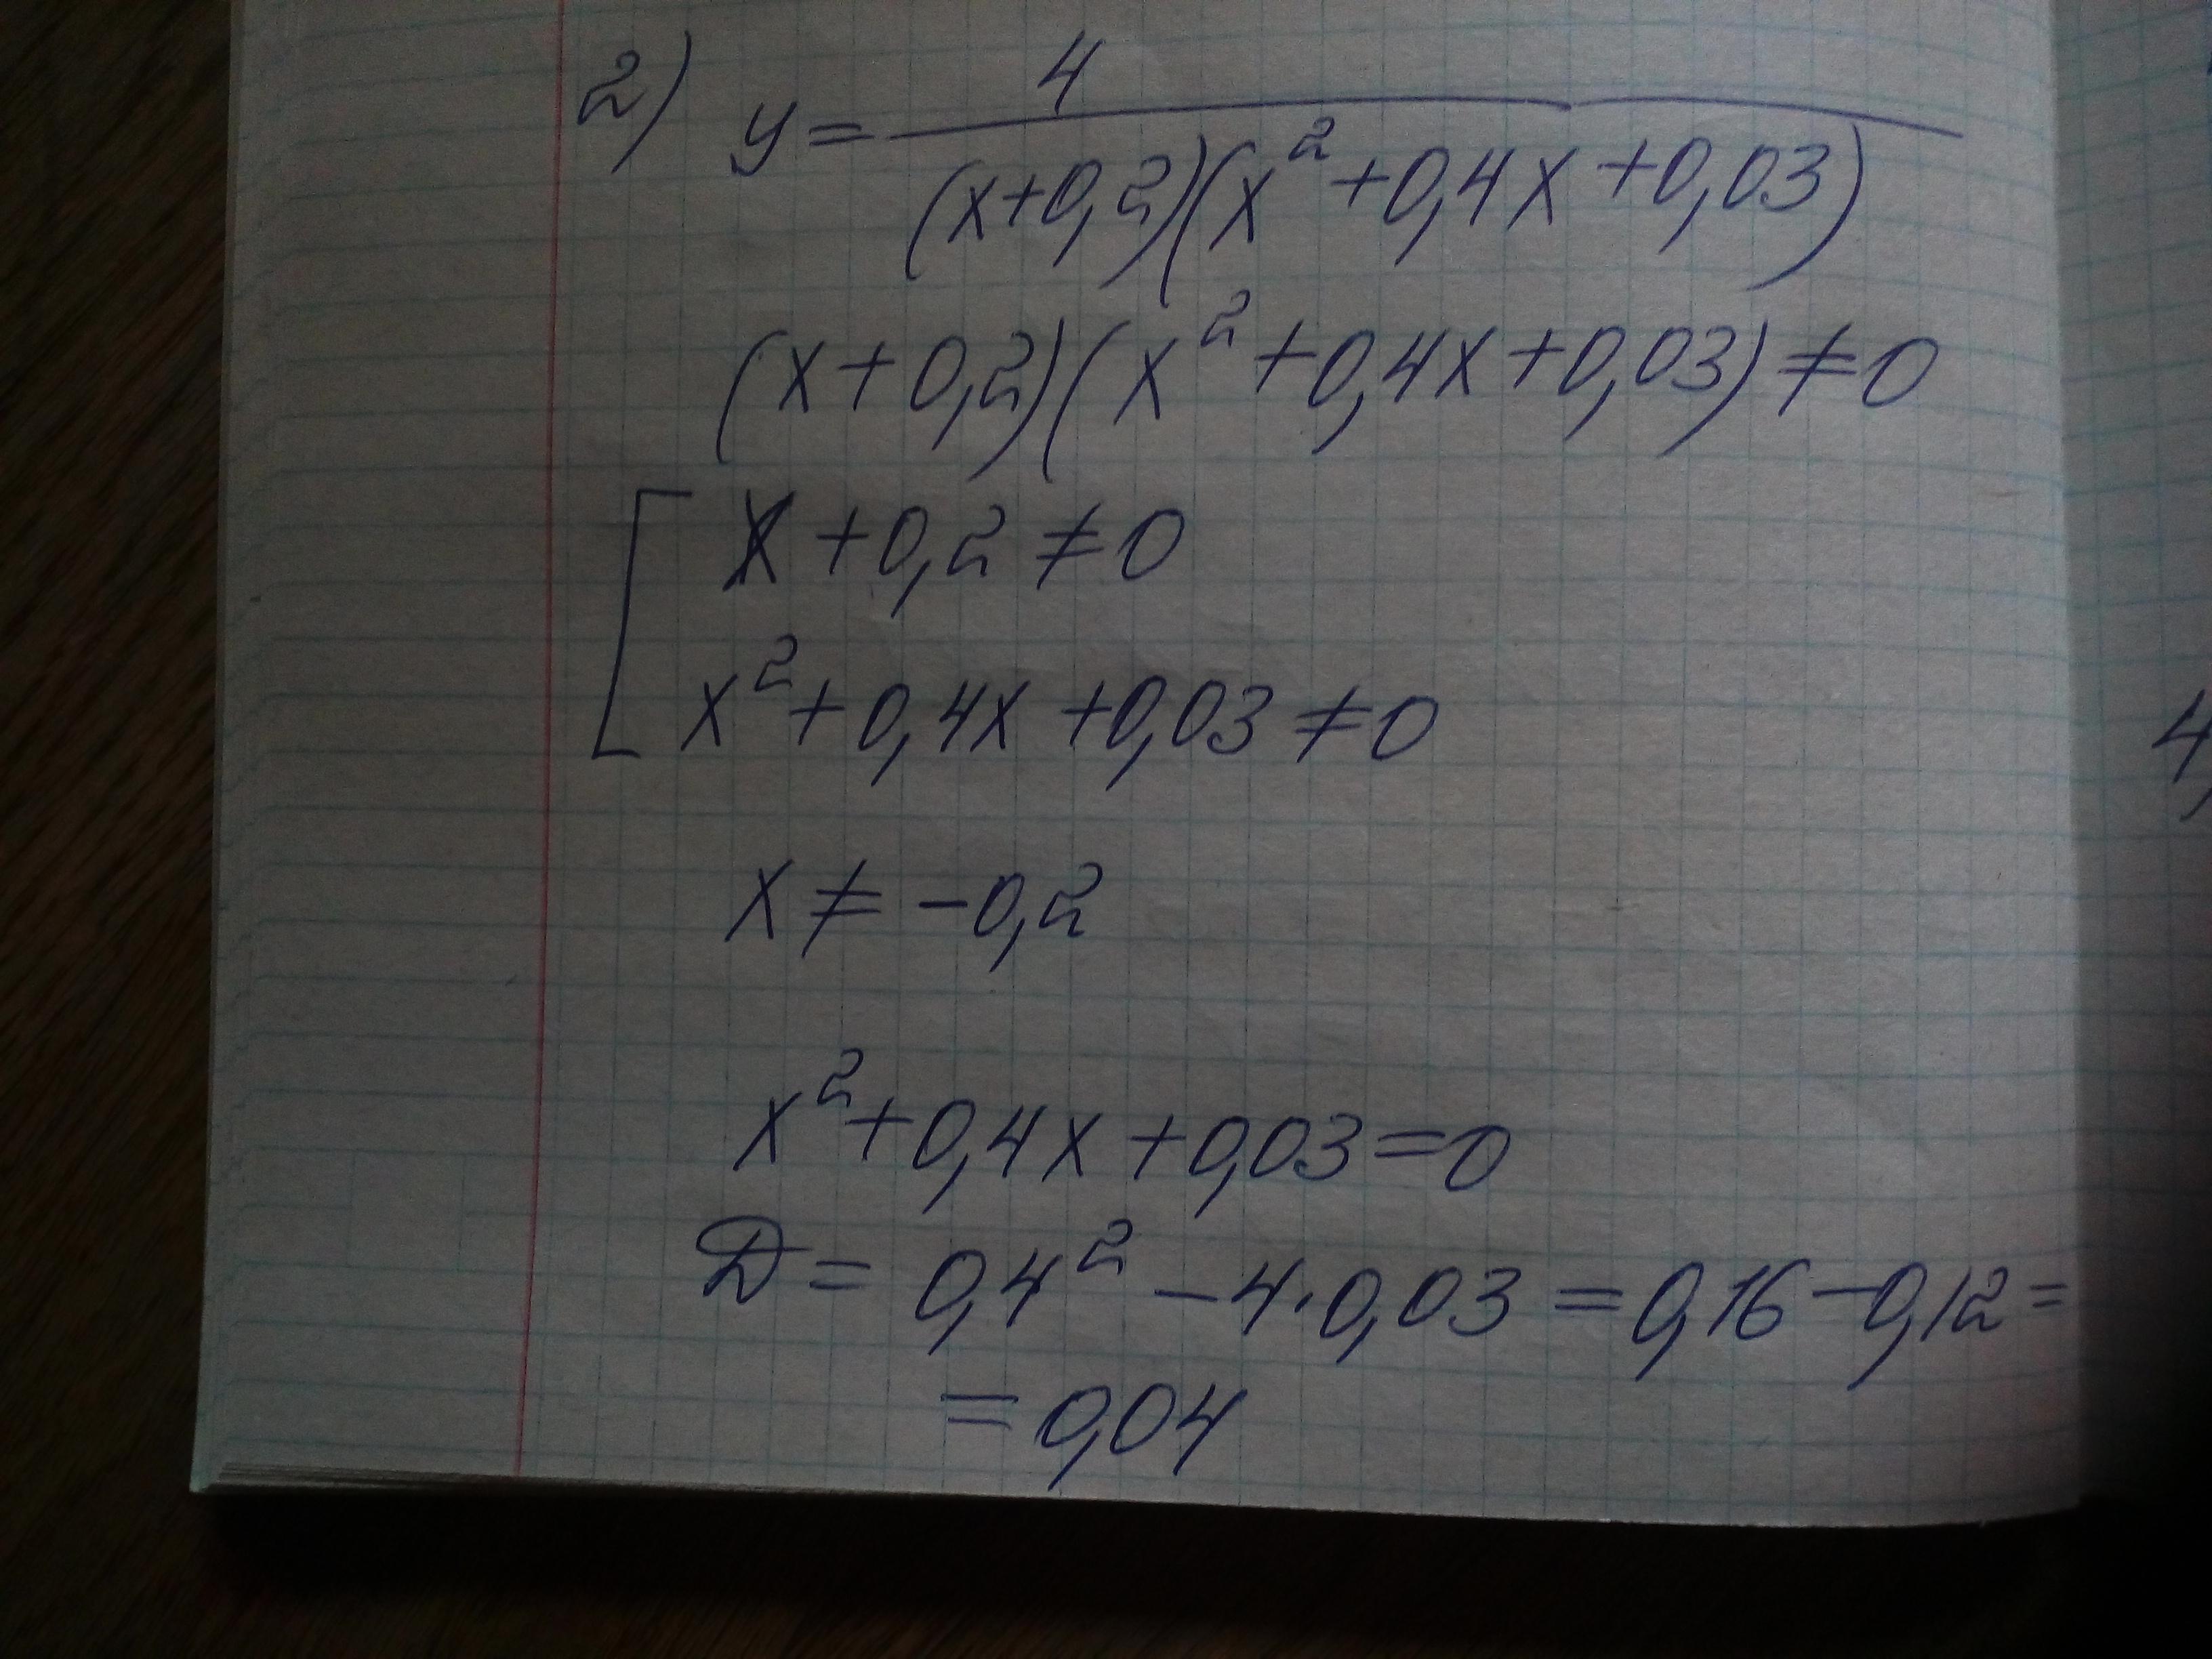 2) y = 4 / (x+0,2)(x²+0,4x+0,03)
(x+0,2)(x²+0,4x+0,03) ≠ 0
[ x+0,2 ≠ 0
x²+0,4x+0,03 ≠ 0
x ≠ -0,2
x²+0,4x+0,03=0
D = 0,4² - 4·0,03 = 0,16 - 0,12 =
= 0,04
4,